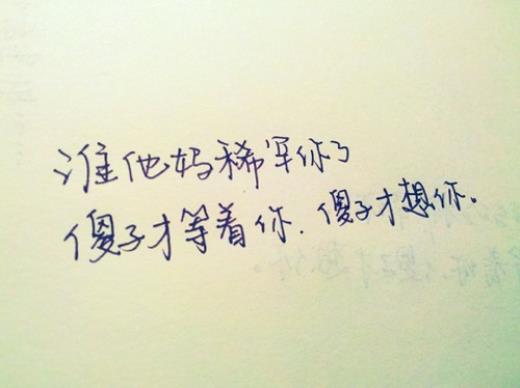 谁他妈稀罕你了
傻子才等着你.傻子才想你。